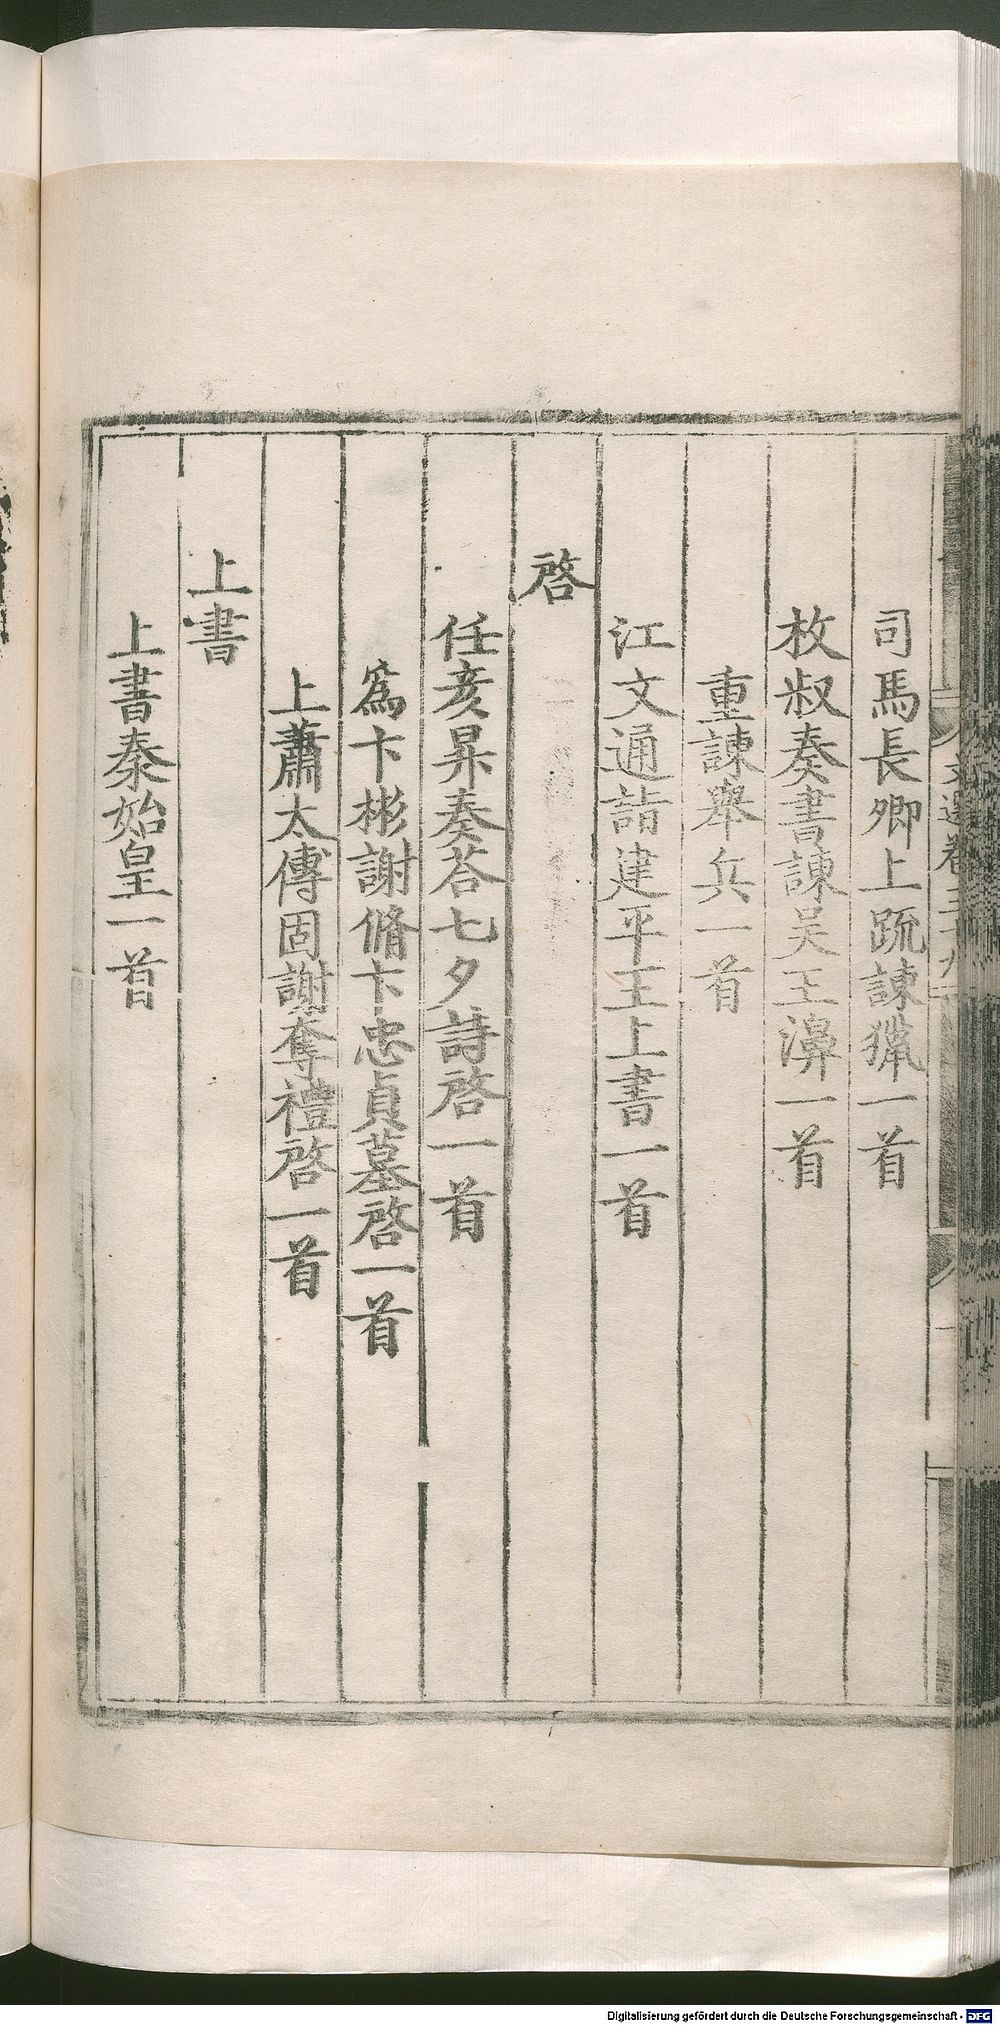 司馬長卿上疏諫獵一首
枚叔奏書諫吳王濞一首
重諫舉兵一首
江文通詣建平王上書一首
啓
任彥昇奏荅七夕詩啓一首
爲卞彬謝脩卞忠貞墓啓一首
上蕭太傅固謝奪禮啓一首
上書
上書秦始皇一首
Digitalisierung gefördert durch die Deutsche Forschungsgemeinschaft - DFG